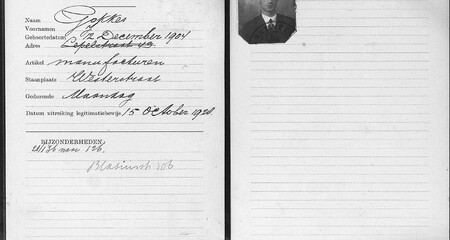 Naam Gopkes
Voornamen
Geboortedatum 12 December 1904
Adres Lepelstraat 49
Artikel manufacturen
Staanplaats Westerstraat
Gedurende Maandag
Datum uitreiking legitimatiebewijs 15 October 1928.
BIJZONDERHEDEN
126.